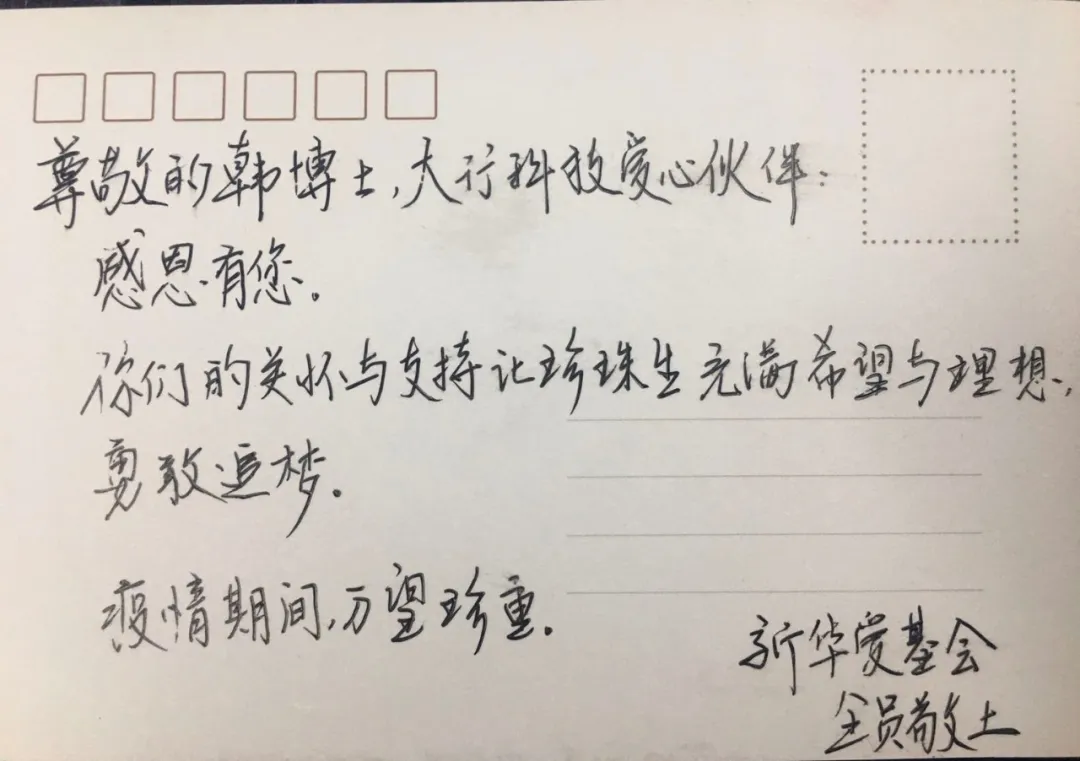 尊敬的韩博士,大行科技爱心伙伴:
感恩有您。
你们的关怀与支持让珍珠生充满希望与理想,
勇敢追梦。
疫情期间,万望珍重。
新华爱基会
全员敬上